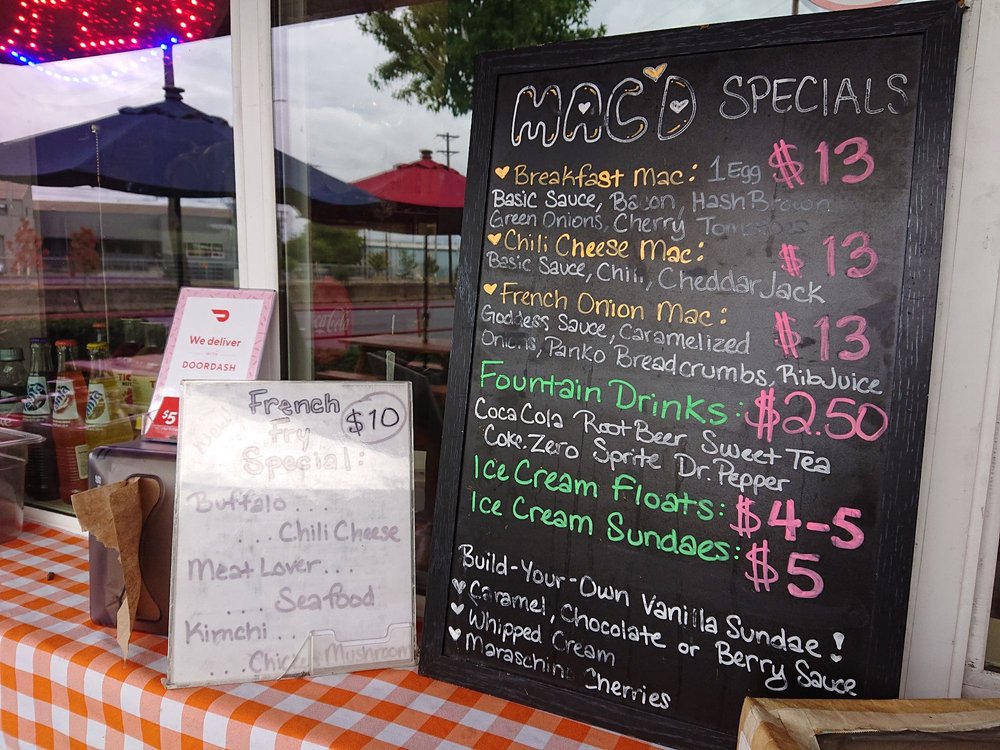 MAC'D SPECIALS
Breakfast Mac: 1 Egg $13
Basic Sauce, Bacon, Hash Brown
Green Onions, Cherry Tomatoes
Chili Cheese Mac: $13
Basic Sauce, Chili, Cheddar Jack
French Onion Mac: $13
Goddess Sauce, Caramelized
Onions, Panko Breadcrumbs, Rib Juice
Fountain Drinks: $2.50
Coca Cola Root Beer Sweet Tea
Coke. Zero Sprite Dr. Pepper
Ice Cream Floats: $4-5
Ice Cream Sundaes: $5
Build-Your-Own Vanilla Sundae!
Caramel, Chocolate or Berry Sauce
Whipped Cream
Maraschino Cherries
French $10
Fry
Special:
Buffalo...
...Chili Cheese
Meat Lover...
....Seafood
Kimchi..
...Chicken Mushroom
We deliver
WITH
DOORDASH
$5
Coca-Cola